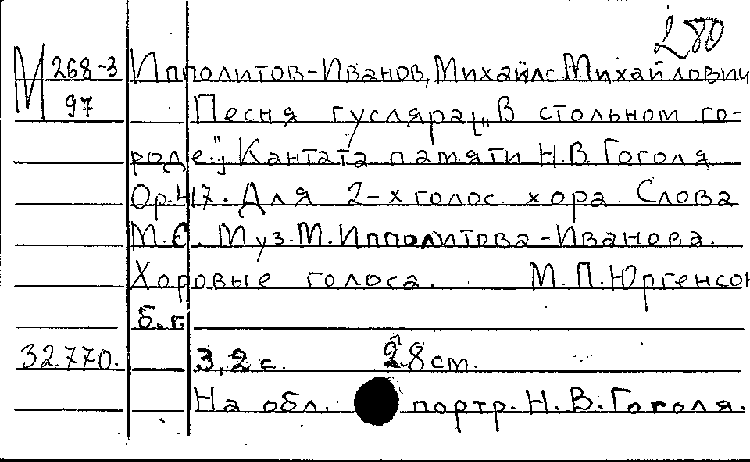 280
М 268-3 Ипполитов-Иванов, Михаилс Михайлович
97 Песня гусляра ["В стольном го-
роде"]. Кантата памяти Н.В. Гоголя
Ор. 47. Для 2-х голос. хора. Слова
М.С. Муз. М. Ипполитова-Иванова.
Хоровые голоса. М. П. Юргенсон
б.г.
32.770. 3,2 с. 28 см.
На обл. портр. Н. В. Гоголя.